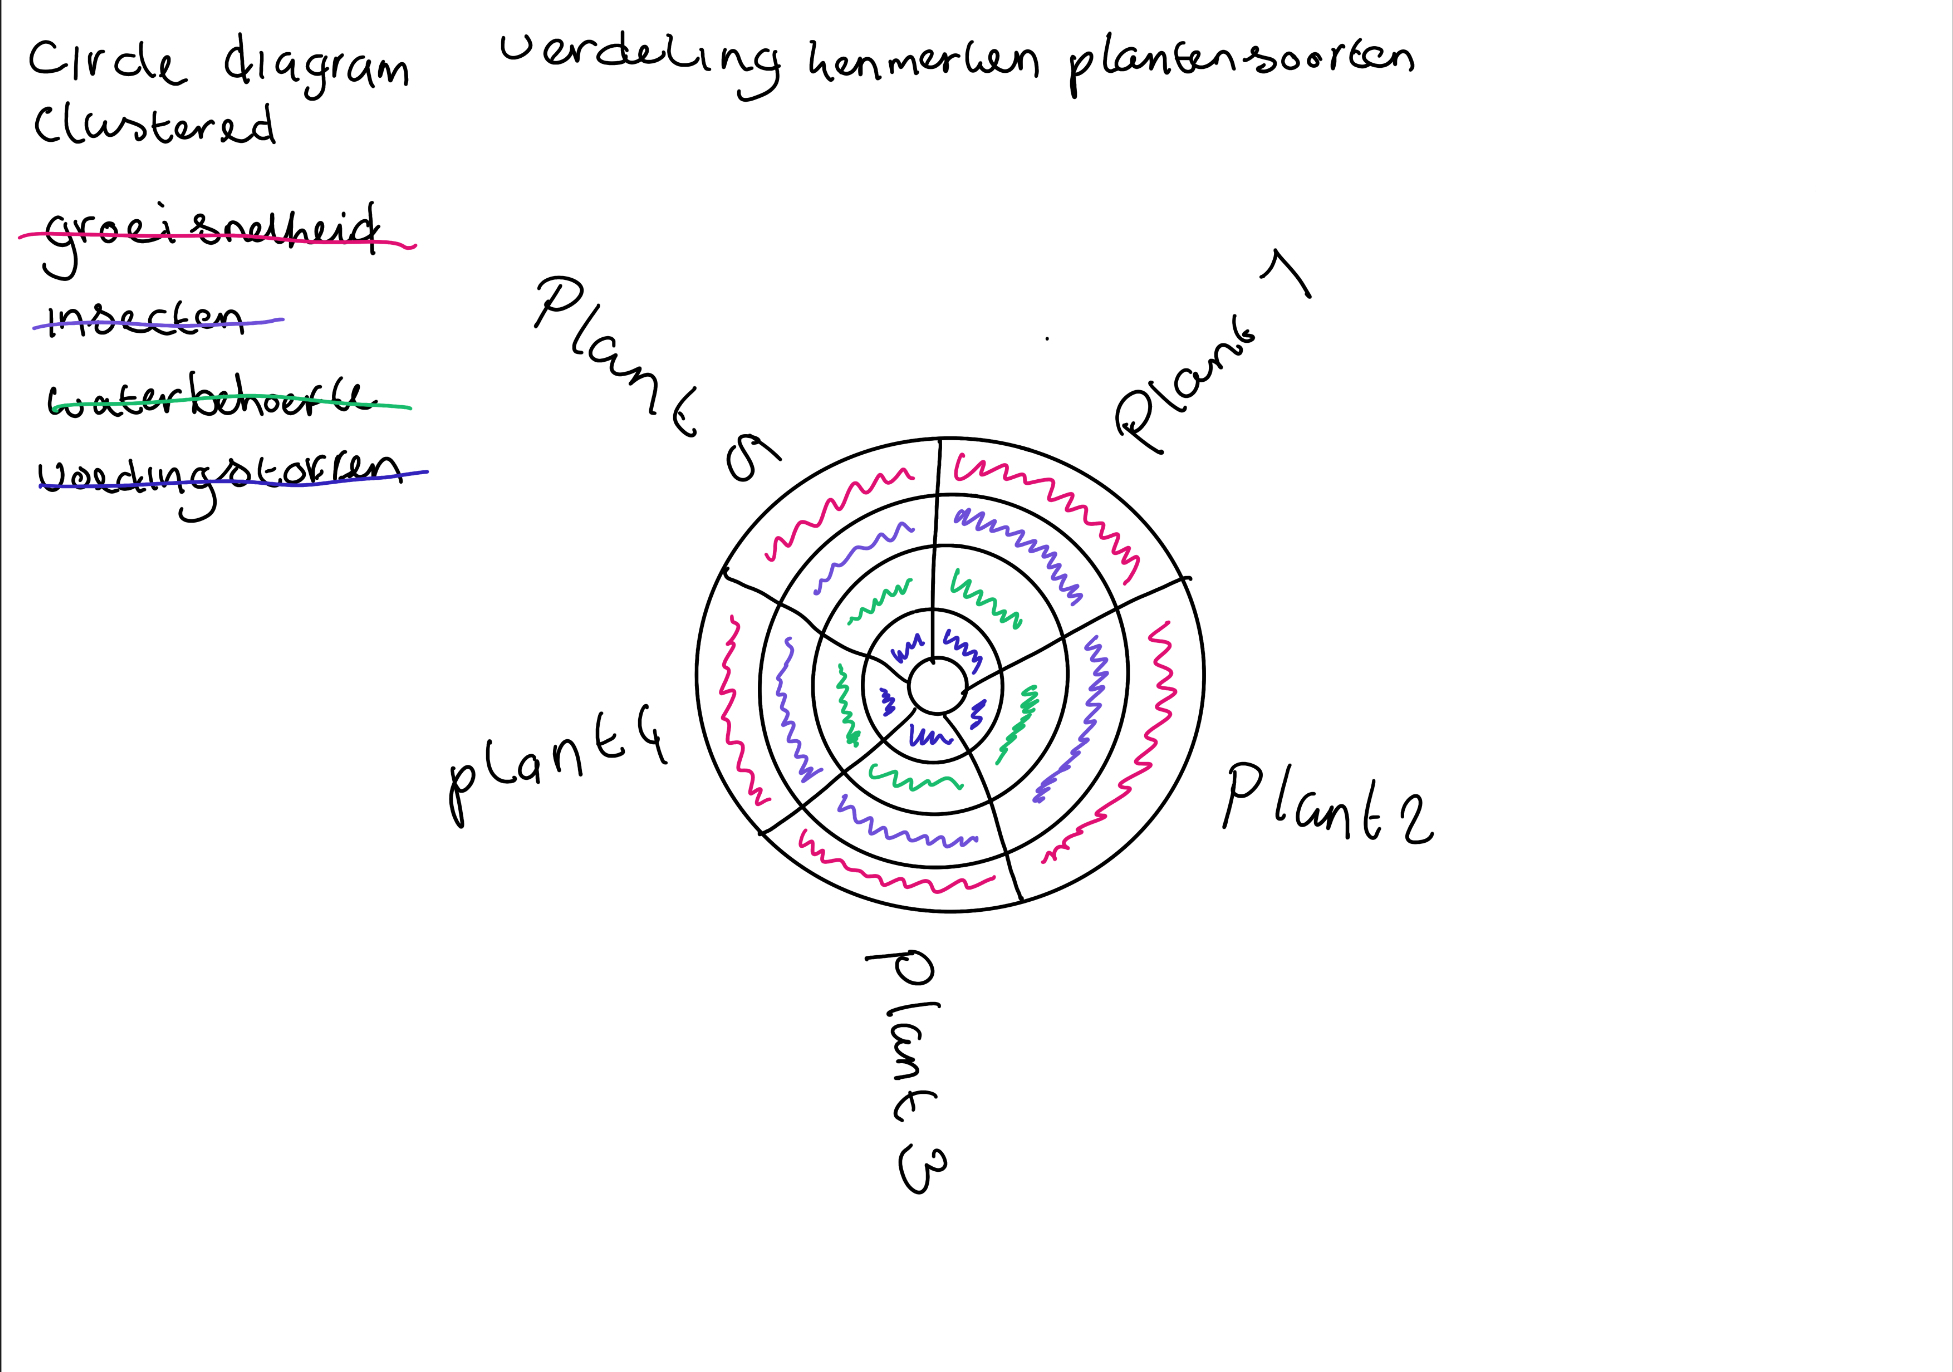 Circle diagram
Clustered
verdeling kenmerken plantensoorten
groeisnelheid
insecten
waterbehoefte
voedingstoffen
Plant 1
Plant 2
plant 3
plant 4
Plant 5